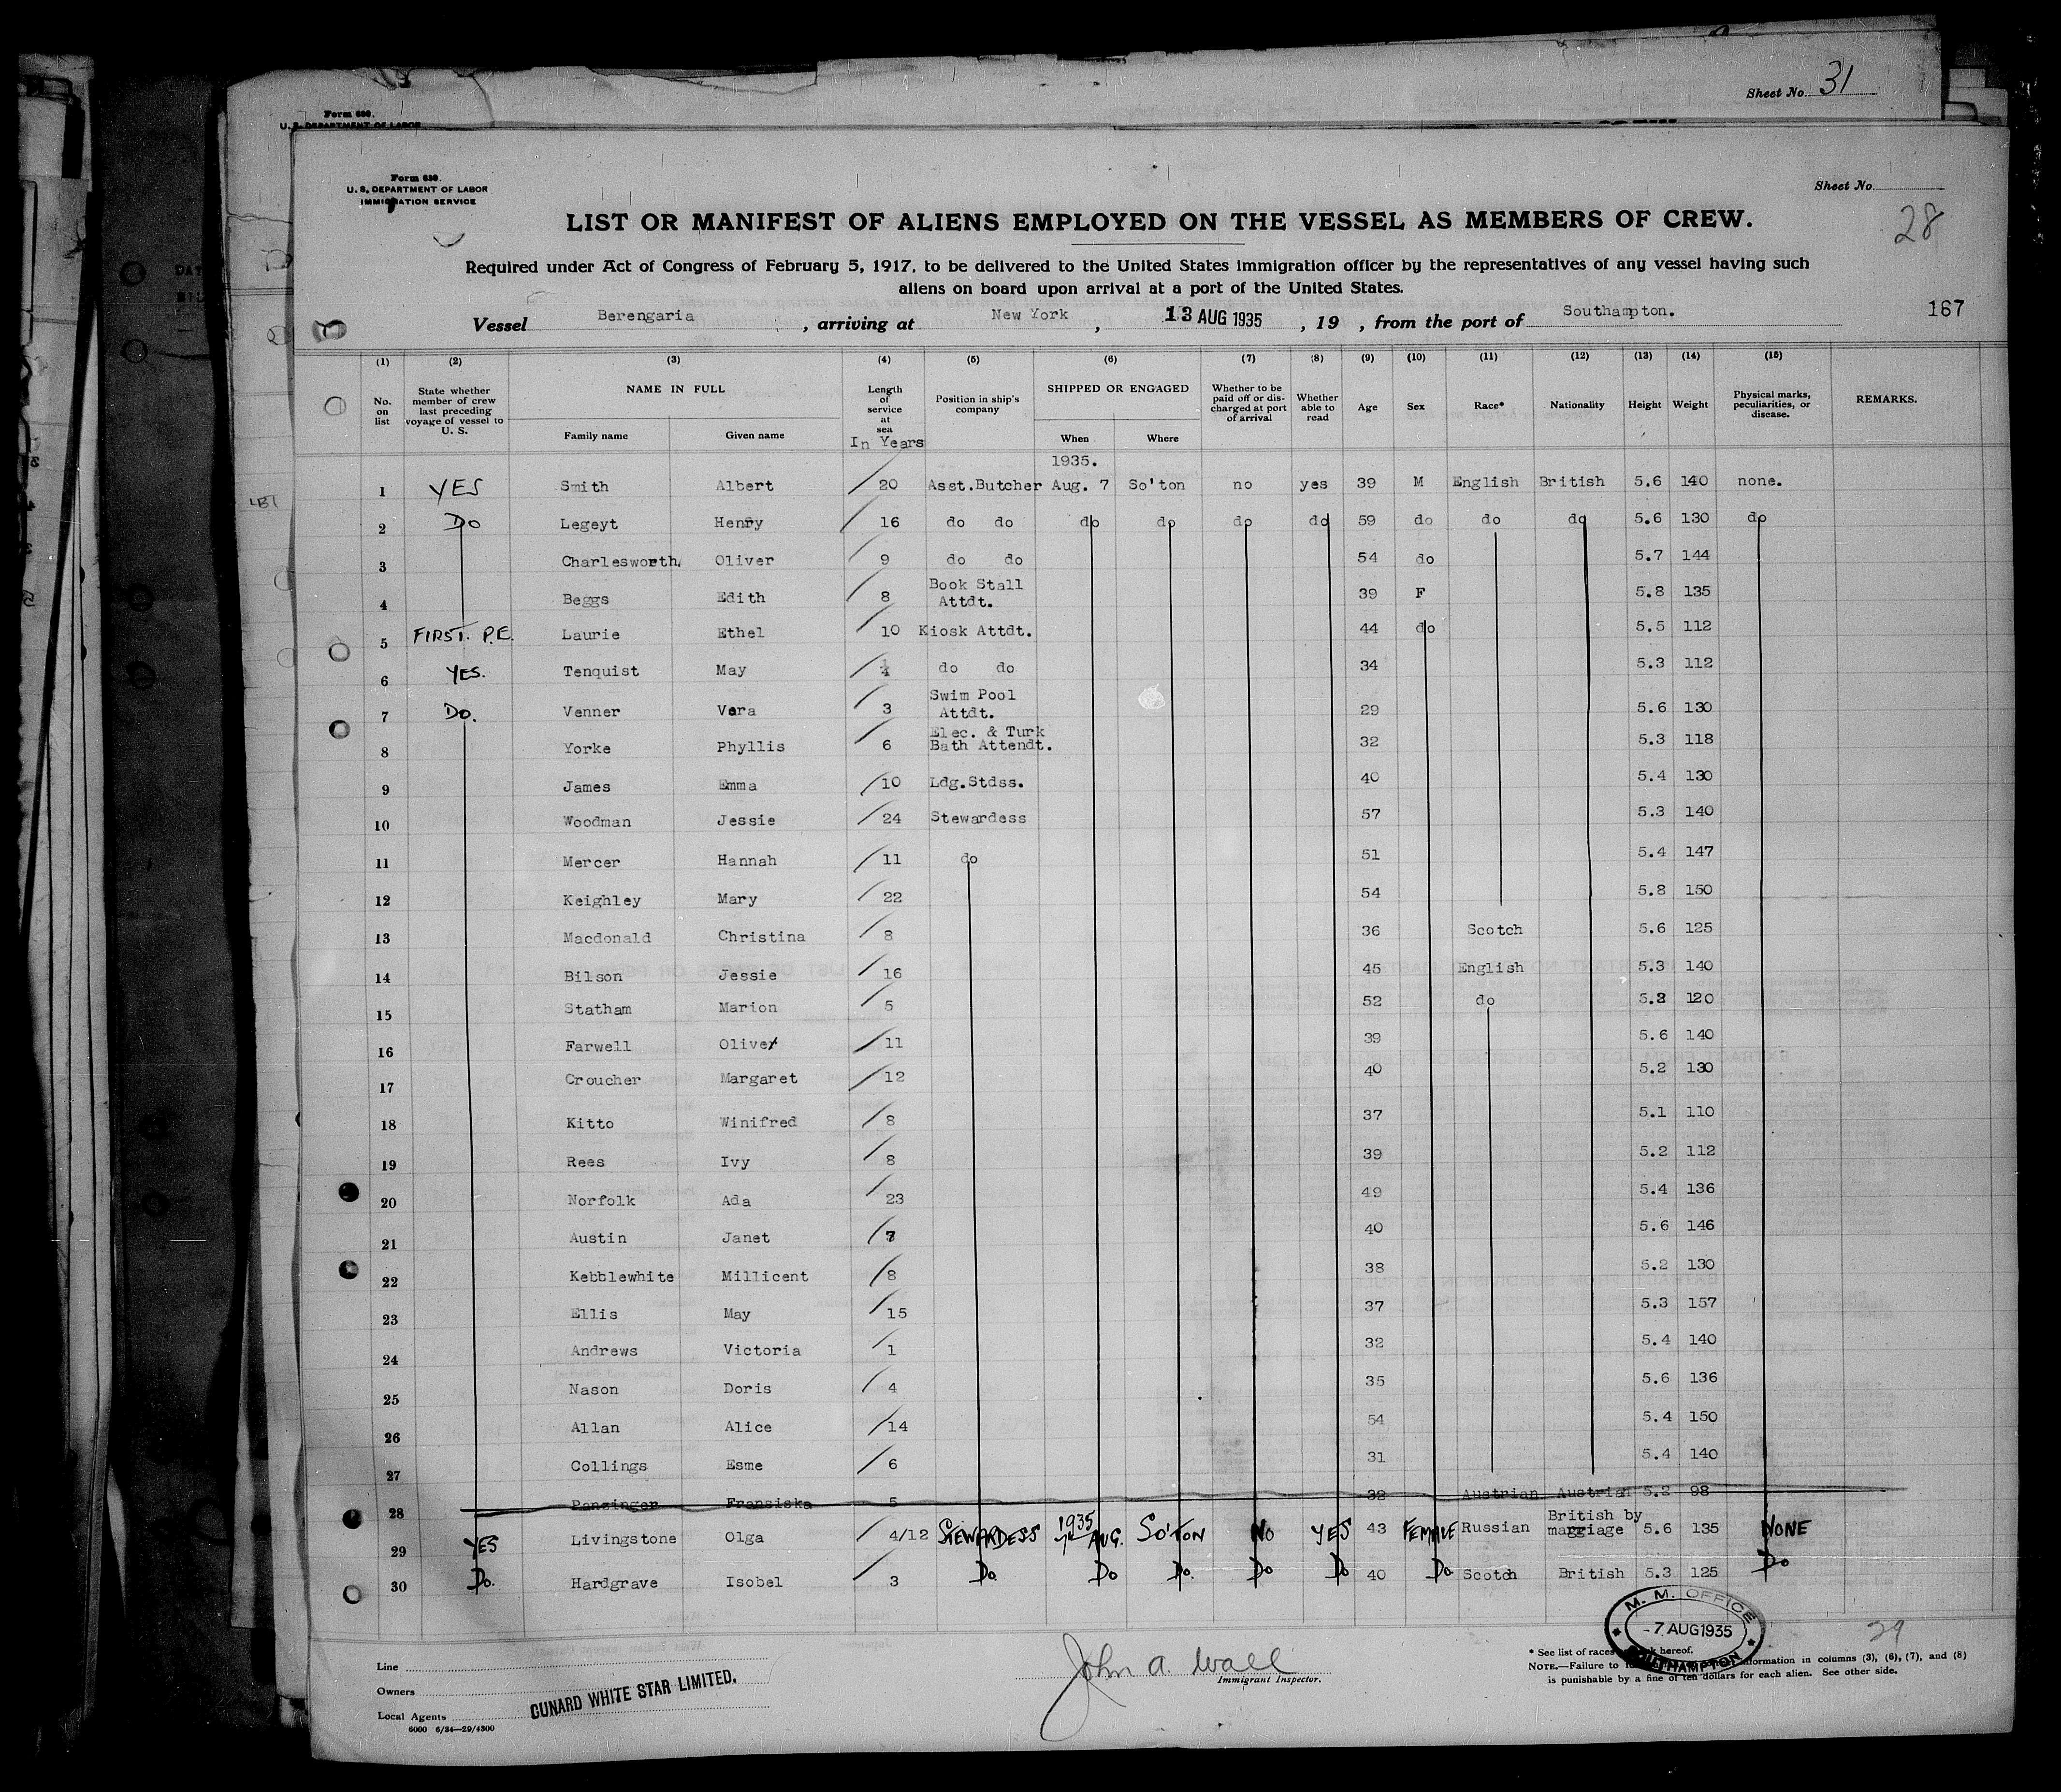 Sheet No. 31
Form 680.
U. S. DEPARTMENT OF LABOR
Form 680.
U. S. DEPARTMENT OF LABOR
IMMIGRATION SERVICE
Sheet No.
28
LIST OR MANIFEST OF ALIENS EMPLOYED ON THE VESSEL AS MEMBERS OF CREW.
Required under Act of Congress of February 5, 1917, to be delivered to the United States immigration officer by the representatives of any vessel having such
aliens on board upon arrival at a port of the United States.
Vessel Berengaria, arriving at New York, 13 AUG 1935, 19 , from the port of Southampton. 167
(1) (2) (3) (4) (5) (6) (7) (8) (9) (10) (11) (12) (13) (14) (15)
No. on list State whether member of crew last preceding voyage of vessel to U. S. NAME IN FULL Family name Given name Length of service at sea In Years Position in ship's company SHIPPED OR ENGAGED When Where Whether to be paid off or discharged at port of arrival Whether able to read Age Sex Race* Nationality Height Weight Physical marks, peculiarities, or disease. REMARKS.
1935.
1 YES Smith Albert 20 Asst.Butcher Aug. 7 So'ton no yes 39 M English British 5.6 140 none.
2 Do Legeyt Henry 16 do do do do do do 59 do do do 5.6 130 do
3 Charlesworth, Oliver 9 do do 54 do 5.7 144
4 Beggs Edith 8 Book Stall Attdt. 39 F 5.8 135
5 FIRST. P.E. Laurie Ethel 10 Kiosk Attdt. 44 do 5.5 112
6 YES. Tenquist May 4 do do 34 5.3 112
7 Do. Venner Vera 3 Swim Pool Attdt. 29 5.6 130
8 Yorke Phyllis 6 Elec. & Turk Bath Attendt. 32 5.3 118
9 James Emma 10 Ldg.Stdss. 40 5.4 130
10 Woodman Jessie 24 Stewardess 57 5.3 140
11 Mercer Hannah 11 do 51 5.4 147
12 Keighley Mary 22 54 5.8 150
13 Macdonald Christina 8 36 Scotch 5.6 125
14 Bilson Jessie 16 45 English 5.3 140
15 Statham Marion 5 52 do 120
16 Farwell Olive 11 39 5.6 140
17 Croucher Margaret 12 40 5.2 130
18 Kitto Winifred 8 37 5.1 110
19 Rees Ivy 8 39 5.2 112
20 Norfolk Ada 23 49 5.4 136
21 Austin Janet 7 40 5.6 146
22 Kebblewhite Millicent 8 38 5.2 130
23 Ellis May 15 37 5.3 157
24 Andrews Victoria 1 32 5.4 140
25 Nason Doris 4 35 5.6 136
26 Allan Alice 14 54 5.4 150
27 Collings Esme 6 31 5.4 140
28 Panzinger Fransiska 5 32 Austrian Austrian 5.2 98
29 YES Livingstone Olga 4/12 STEWARDESS 1935 7th AUG. So'TON NO YES 43 FEMALE Russian British by marriage 5.6 135 NONE
30 Do. Hardgrave Isobel 3 Do. Do Do. Do Do 40 Do Scotch British 5.3 125 Do
M. M. OFFICE
-7 AUG 1935
SOUTHAMPTON
29
Line
Owners
Local Agents
CUNARD WHITE STAR LIMITED.
6000 6/34—29/4300
John A. Wall
Immigrant Inspector.
* See list of races hereof.
NOTE.—Failure to information in columns (3), (6), (7), and (8)
is punishable by a fine of ten dollars for each alien. See other side.